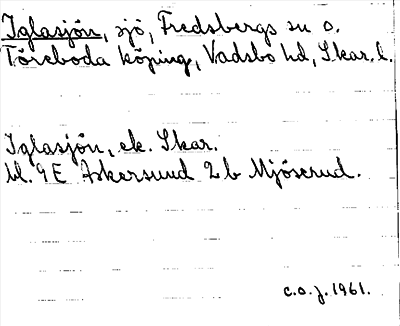 Iglasjön, sjö, Fredsbergs sn o.
Töreboda köping, Vadsbo hd, Skar. l.
Iglasjön, ek. Skar.
bl. 9E Askersund 2b Mjöserud.
c.o.j. 1961.